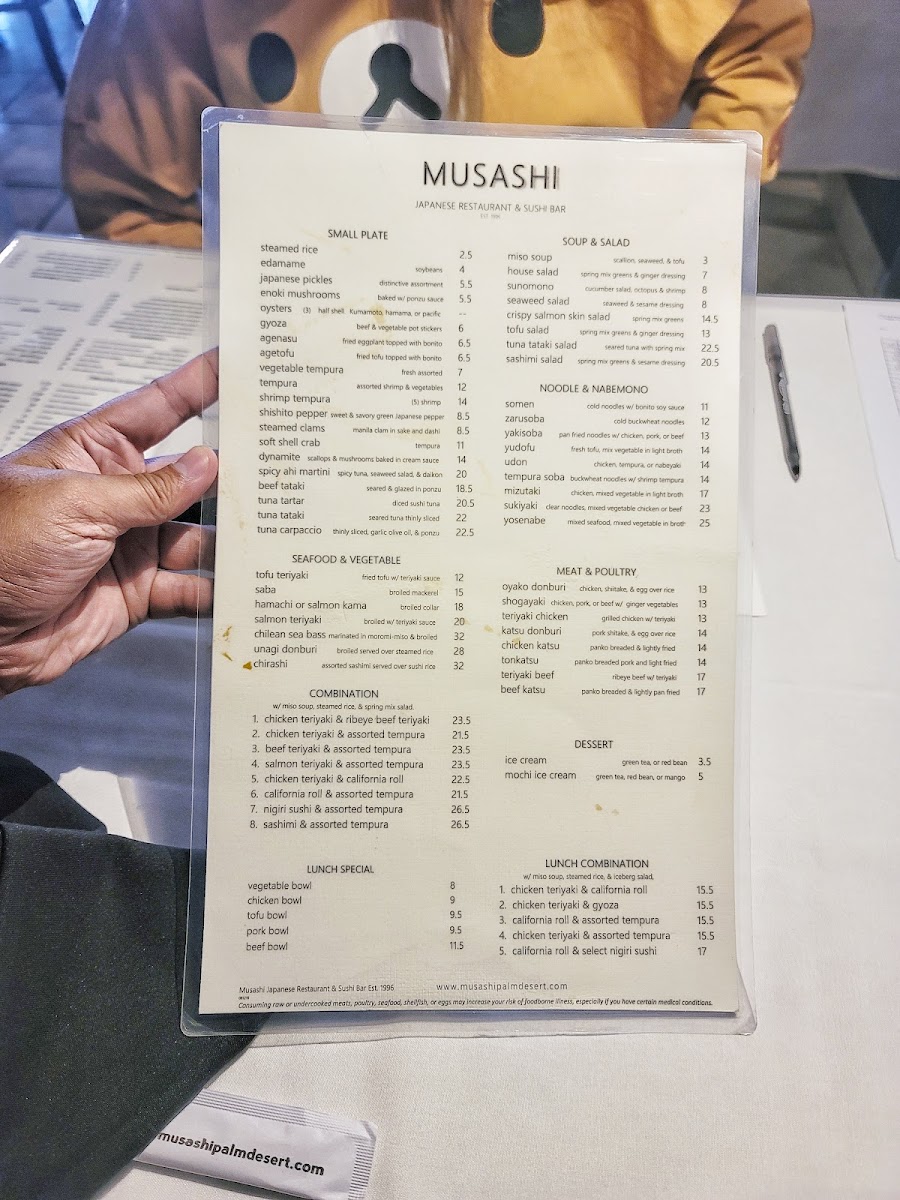 MUSASHI
JAPANESE RESTAURANT & SUSHI BAR
EST. 1996
SMALL PLATE
steamed rice 2.5
edamame soybeans 4
japanese pickles distinctive assortment 5.5
enoki mushrooms baked w/ ponzu sauce 5.5
oysters (3) half shell. Kumamoto, hamama, or pacific --
gyoza beef & vegetable pot stickers 6
agenasu fried eggplant topped with bonito 6.5
agetofu fried tofu topped with bonito 6.5
vegetable tempura fresh assorted 7
tempura assorted shrimp & vegetables 12
shrimp tempura (5) shrimp 14
shishito pepper sweet & savory green Japanese pepper 8.5
steamed clams manila clam in sake and dashi 8.5
soft shell crab tempura 11
dynamite scallops & mushrooms baked in cream sauce 14
spicy ahi martini spicy tuna, seaweed salad, & daikon 20
beef tataki seared & glazed in ponzu 18.5
tuna tartar diced sushi tuna 20.5
tuna tataki seared tuna thinly sliced 22
tuna carpaccio thinly sliced, garlic olive oil, & ponzu 22.5
SEAFOOD & VEGETABLE
tofu teriyaki fried tofu w/ teriyaki sauce 12
saba broiled mackerel 15
hamachi or salmon kama broiled collar 18
salmon teriyaki broiled w/ teriyaki sauce 20
chilean sea bass marinated in moromi-miso & broiled 32
unagi donburi broiled served over steamed rice 28
chirashi assorted sashimi served over sushi rice 32
COMBINATION
w/ miso soup, steamed rice, & spring mix salad.
1. chicken teriyaki & ribeye beef teriyaki 23.5
2. chicken teriyaki & assorted tempura 21.5
3. beef teriyaki & assorted tempura 23.5
4. salmon teriyaki & assorted tempura 23.5
5. chicken teriyaki & california roll 22.5
6. california roll & assorted tempura 21.5
7. nigiri sushi & assorted tempura 26.5
8. sashimi & assorted tempura 26.5
LUNCH SPECIAL
vegetable bowl 8
chicken bowl 9
tofu bowl 9.5
pork bowl 9.5
beef bowl 11.5
SOUP & SALAD
miso soup scallion, seaweed, & tofu 3
house salad spring mix greens & ginger dressing 7
sunomono cucumber salad, octopus & shrimp 8
seaweed salad seaweed & sesame dressing 8
crispy salmon skin salad spring mix greens 14.5
tofu salad spring mix greens & ginger dressing 13
tuna tataki salad seared tuna with spring mix 22.5
sashimi salad spring mix greens & sesame dressing 20.5
NOODLE & NABEMONO
somen cold noodles w/ bonito soy sauce 11
zarusoba cold buckwheat noodles 12
yakisoba pan fried noodles w/ chicken, pork, or beef 13
yudofu fresh tofu, mix vegetable in light broth 14
udon chicken, tempura, or nabeyaki 14
tempura soba buckwheat noodles w/ shrimp tempura 14
mizutaki chicken, mixed vegetable in light broth 17
sukiyaki clear noodles, mixed vegetable chicken or beef 23
yosenabe mixed seafood, mixed vegetable in broth 25
MEAT & POULTRY
oyako donburi chicken, shiitake, & egg over rice 13
shogayaki chicken, pork, or beef w/ ginger vegetables 13
teriyaki chicken grilled chicken w/ teriyaki 13
katsu donburi pork shitake, & egg over rice 14
chicken katsu panko breaded & lightly fried 14
tonkatsu panko breaded pork and light fried 14
teriyaki beef ribeye beef w/ teriyaki 17
beef katsu panko breaded & lightly pan fried 17
DESSERT
ice cream green tea, or red bean 3.5
mochi ice cream green tea, red bean, or mango 5
LUNCH COMBINATION
w/ miso soup, steamed rice, & iceberg salad,
1. chicken teriyaki & california roll 15.5
2. chicken teriyaki & gyoza 15.5
3. california roll & assorted tempura 15.5
4. chicken teriyaki & assorted tempura 15.5
5. california roll & select nigiri sushi 17
Musashi Japanese Restaurant & Sushi Bar Est. 1996 www.musashipalmdesert.com
Consuming raw or undercooked meats, poultry, seafood, shellfish, or eggs may increase your risk of foodborne illness, especially if you have certain medical conditions.
musashipalmdesert.com